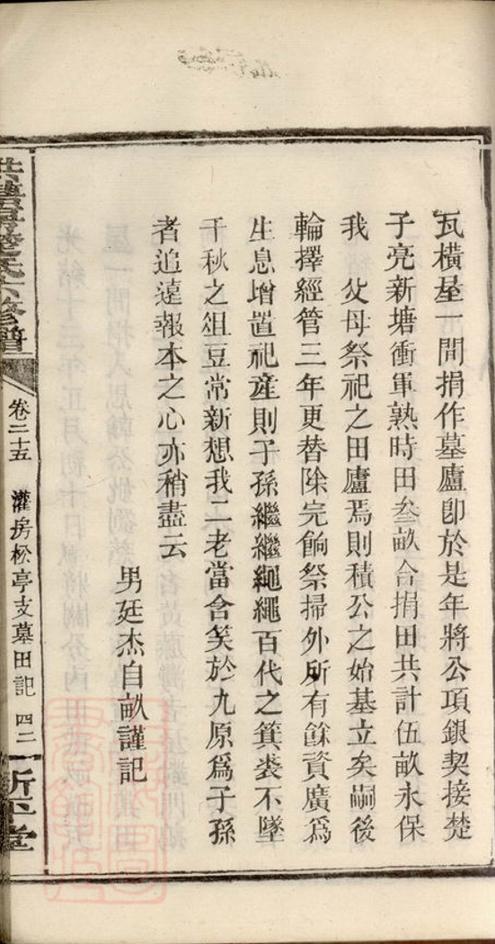 瓦橫屋一間捐作墓廬卽於是年將公項銀契接楚
子亮新塘衝軍熟時田叄畝合捐田共計伍畝永保
我　父母祭祀之田廬焉則積公之始基立矣嗣後
輪擇經管三年更替除完餉祭掃外所有餘資廣爲
生息增置祀產則子孫繼繼繩繩百代之箕裘不墜
千秋之俎豆常新想我二老當含笑於九原爲子孫
者追遠報本之心亦稍盡云
男廷杰自畝謹記
氏六修譜
卷二十五
灌房松亭支墓田記
四二
堂